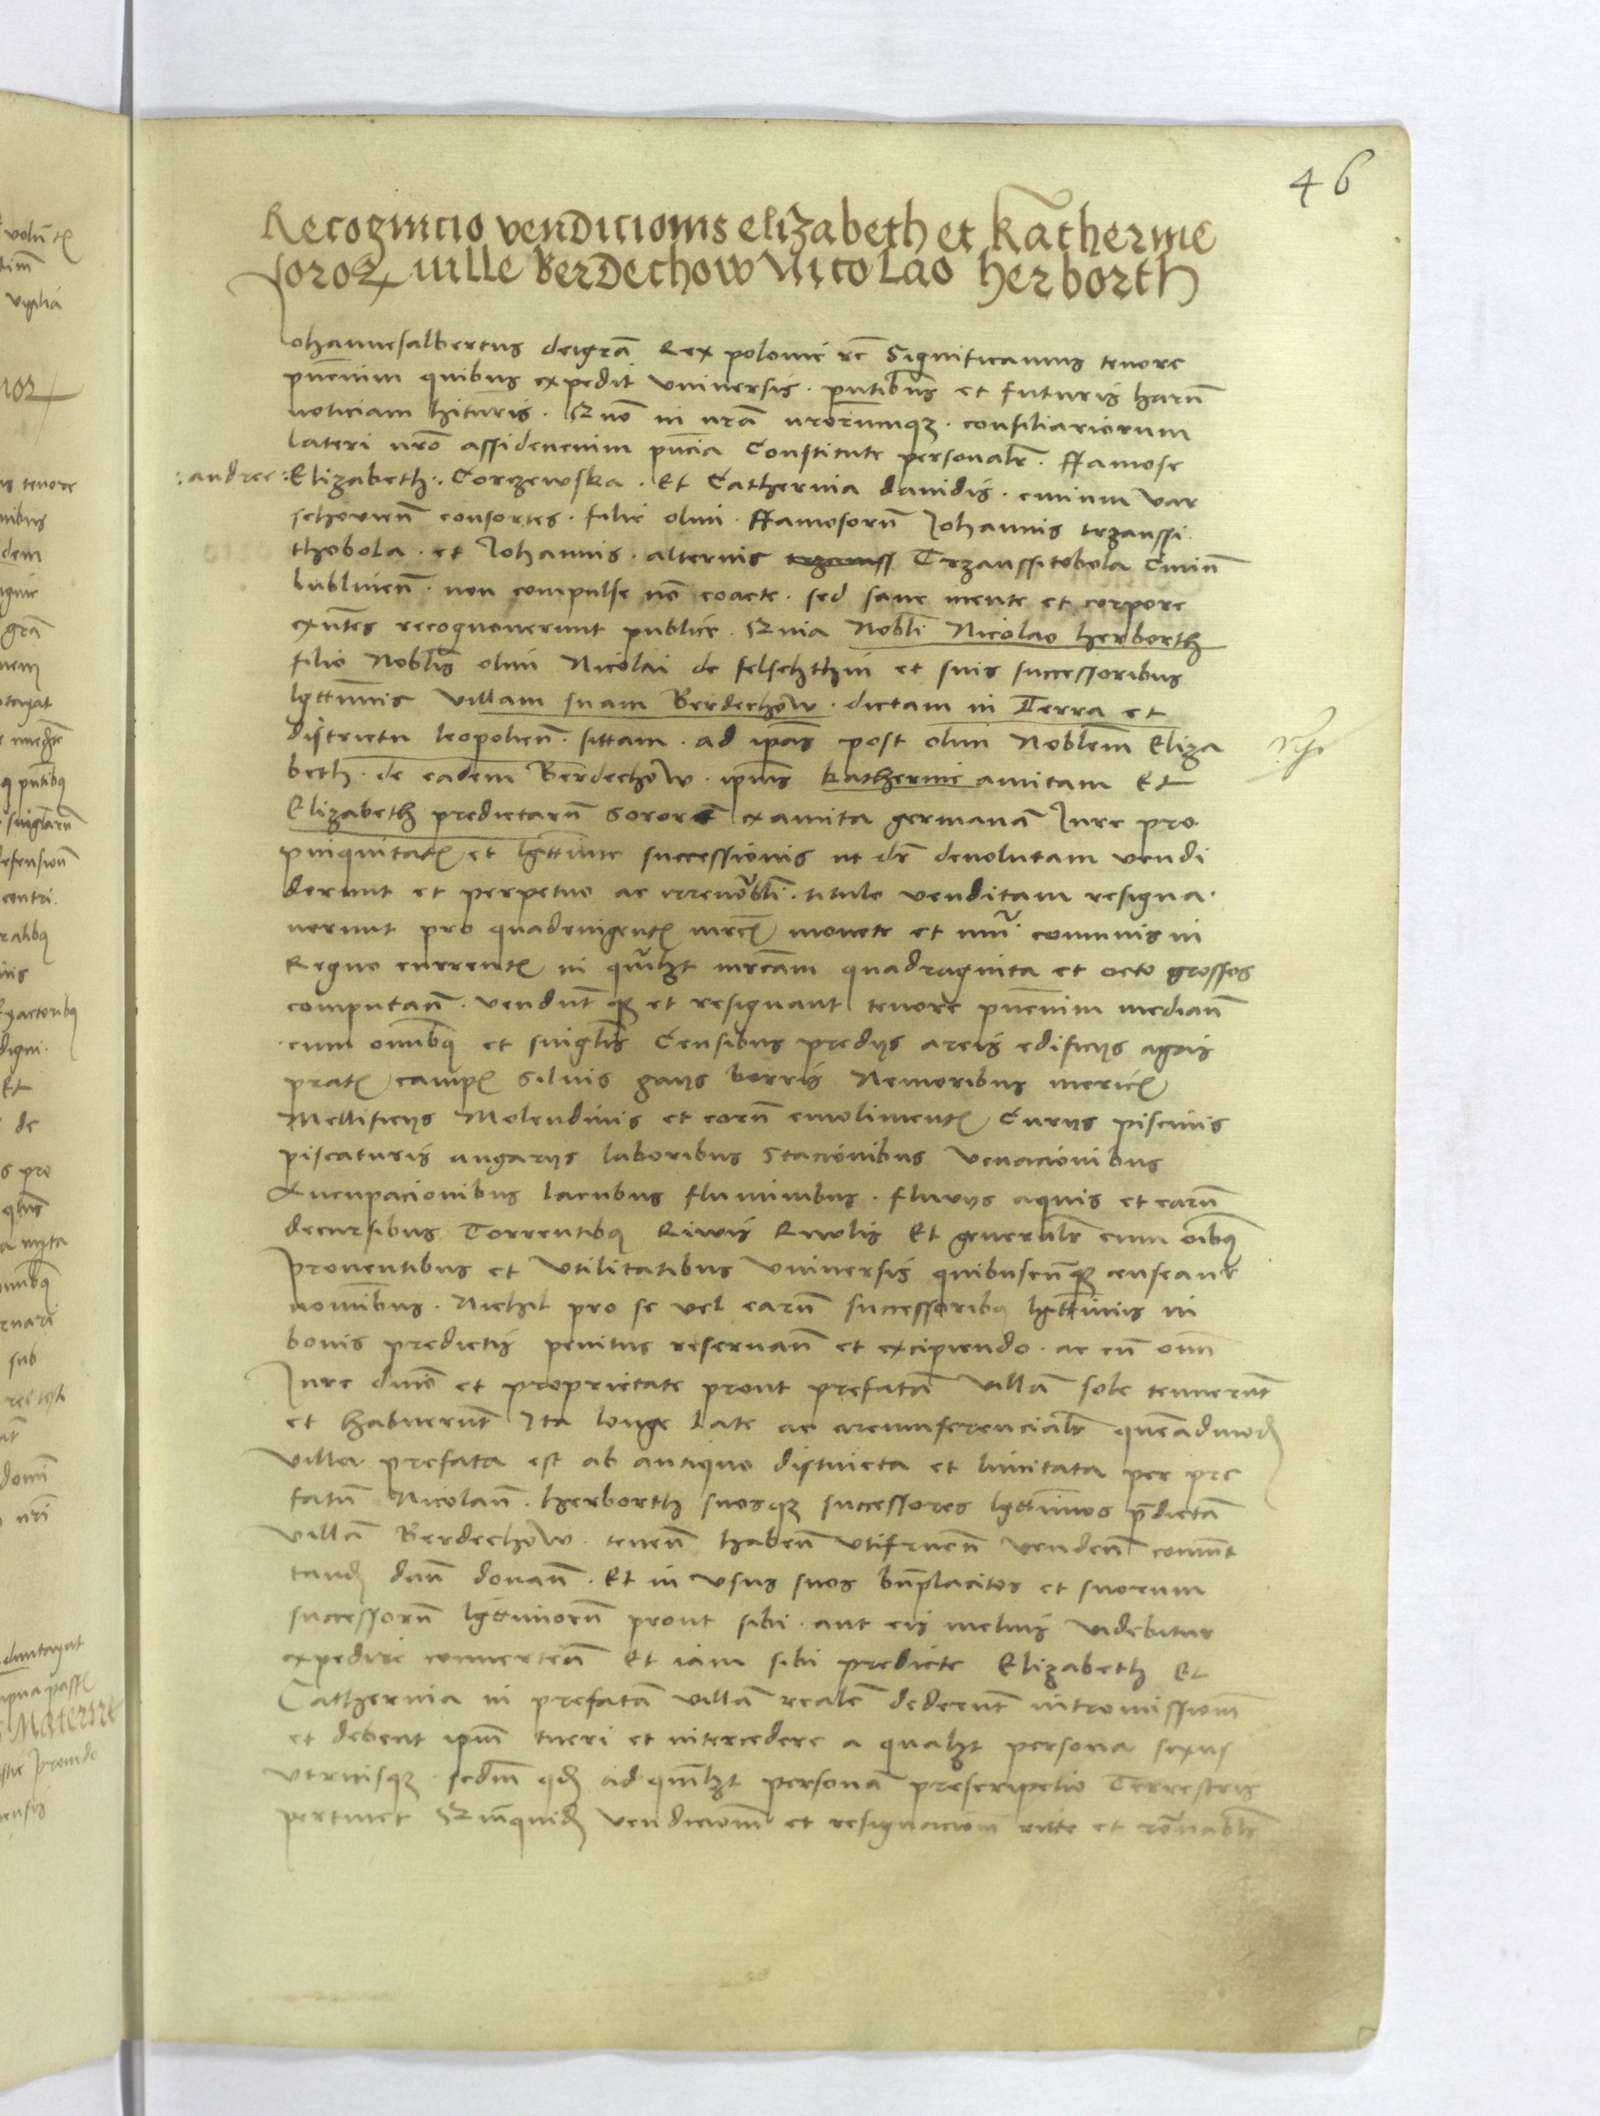 46
Recognicio vendicionis elizabeth et Katherine
soror ville Berdechow Nicolao herborth
Johannesalbertus deigrã Rex polonie rc̃ Significamus tenore
pñcium quibus expedit vniversis . pñtibus et futuris harũ
noticiam hituris . Quo in nrã nrorumqꝫ . consiliariorum
lateri nrõ assidencium pñcia Constitute personalr̃ . ffamose
: andree : Elizabeth . Gorzewska . Et Catherina dauidis . ciuium var
schovienñ consortes . filie olim . ffamosorũ Johannis trzanssi
thobola . et Johannis . alternis Trzanssitobola Ciuiũ
lublinenñ . non compulse nõ coacte . sed sane mente et corpore
exñtes recognouerunt publice . Quia Nobli Nicolao herborth
filio Noblis olim Nicolai de felschthin et suis successoribus
lgttimis villam suam Berdechow . dictam in Terra et
districtu leopolienñ . sittam . ad ipas post olim Noblem Eliza
beth . de eadem Berdechow . ipius katherine amitam Et
Elizabeth predictarũ sororẽ examita germanã Jure pro
pinquitatꝭ et lgttime successionis ut dr̃ deuolutam vendi
derunt et perpetuo ac irreuocabli . titulo venditam resigna
uerunt pro quadringentꝭ mrcꝭ monete et nũi communis in
Regno currentꝭ in qualꝫt mrcam quadraginta et octo grossos
computanñ . vendunt qꝫ et resignant tenore pñcium medianñ
cum omibꝰ et singlis Censibus predijs areis edificijs agris
pratꝭ campꝭ siluis gaijs borris Nemoribus mericꝭ
Mellificijs Molendinis et eorũ emolimentꝭ Curijs piscinis
piscaturis angarijs laboribus Stacionibus Venacionibus
Aucupacionibus lacubus fluminibus . fluvijs aquis et earũ
decursibus Torrentibꝰ Riwis Rwlis Et generalr̃ cum oibꝰ
prouentibus et Vtilitatibus Vniuersis quibuscũqꝫ censeantr
nominibus . Nichil pro se vel earũ successoribꝰ lgttimis in
bonis predictis penitus reseruanñ et excipiendo . ac cũ omi
Jure dnio et proprietate prout prefatã villã sole tenuerũt
et habuerũt Jta longe late ac circumferencialr̃ quẽadmodꝫ
villa prefata est ab antiquo distincta et limitata per pre
fatũ Nicolaũ . herborth suosqꝫ successores lgttimos p̃dictã
villã Berdechow . tenenñ habenñ vtifruenñ vendenñ comut
tandꝫ danñ donanñ . Et in vsus suos bñplacitos et suorum
successorũ lgttimorũ prout sibi . aut eis melius videbitur
expedire conuertenñ Et iam sibi predicte Elizabeth et
Catherina in prefatã villã realẽ dederũt intromissionẽ
et debent ipm tueri et intercedere a qualꝫt persona sexus
vtriusqꝫ . sedm qdꝫ ad qualꝫt personã prescripcio Terrestris
pertinet Quãquidꝫ vendicionẽ et resignacionẽ ritte et rõnablr̃